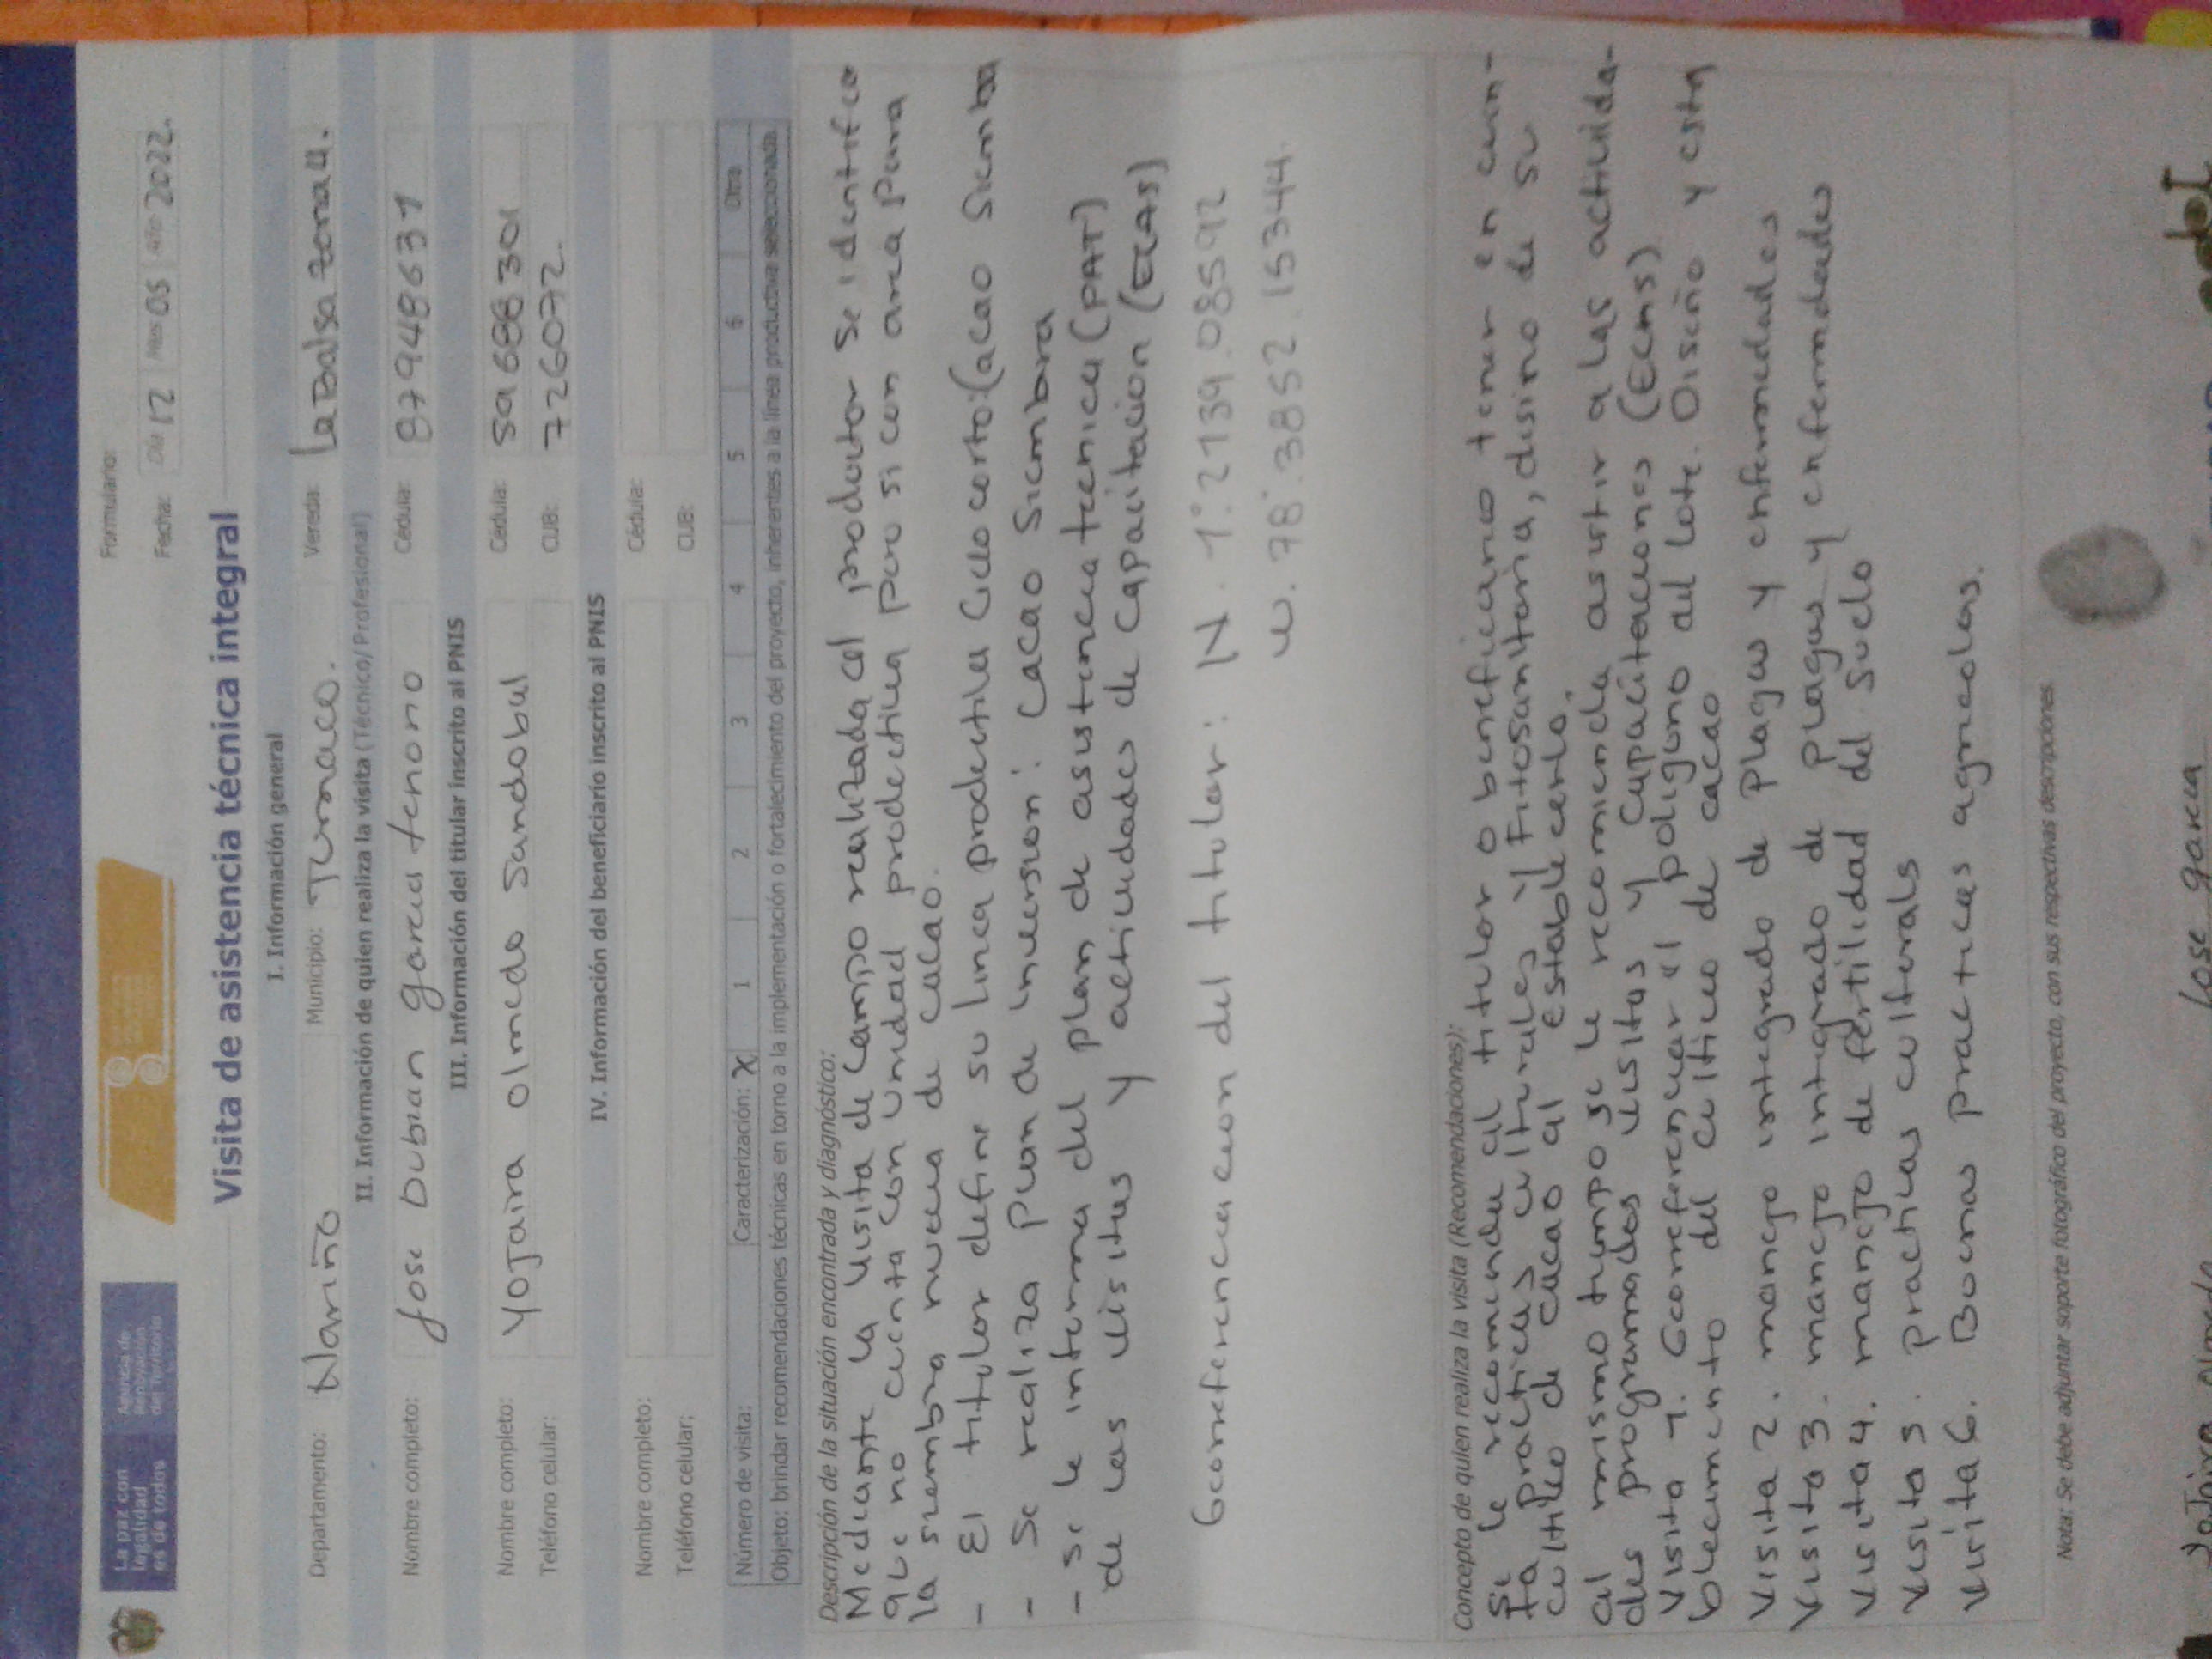 La paz con
legalidad
es de todos
Agencia de
Renovación
del Territorio
Formulario:
Fecha: Día 12 Mes 05 Año 2022.
Visita de asistencia técnica integral
I. Información general
Departamento: Nariño Municipio: Tumaco. Vereda: La Balsa zona U.
II. Información de quien realiza la visita (Técnico/ Profesional)
Nombre completo: Jose Dubian garcia tenorio Cédula: 87948631
III. Información del titular inscrito al PNIS
Nombre completo: Yojaira olmedo Sandobal Cédula: 59688301
Teléfono celular: CUB: 726072.
IV. Información del beneficiario inscrito al PNIS
Nombre completo: Cédula:
Teléfono celular: CUB:
Número de visita: Caracterización: X 1 2 3 4 5 6 Otra
Objeto: brindar recomendaciones técnicas en torno a la implementación o fortalecimiento del proyecto, inherentes a la línea productiva seleccionada.
Descripción de la situación encontrada y diagnóstico:
Mediante la visita de campo realizada al productor se identifico
que no cuenta con unidad productiva pero si con area para
la siembra nueva de cacao.
- El titular define su linea productiva Ciclo corto: Cacao Siembra
- Se realiza plan de inversion: Cacao Siembra
- se le informa del plan de asistencia tecnica (PAT)
de las visitas y actividades de Capacitacion (ECAS)
Georeferenciacion del titular: N. 1°.2139.08592
w. 78°.3852.15344.
Concepto de quien realiza la visita (Recomendaciones):
Se le recomienda al titular o beneficiario tener en cuen-
ta practicas culturales y Fitosanitaria, diseno de su
cultivo de cacao al establecerlo.
al mismo tiempo se le recomienda asistir a las actividades-
des programadas visitas y Capacitaciones (Ecas)
Visita 1. Georeferenciar el poligono del lote. Diseño y esta
blecimiento del cultivo de cacao
Visita 2. manejo integrado de Plagas y enfermedades
Visita 3. manejo integrado de plagas y enfermedades
Visita 4. manejo de fertilidad del suelo
Visita 5. practicas culturals
Visita 6. Buenas practicas agricolas.
Nota: Se debe adjuntar soporte fotográfico del proyecto, con sus respectivas descripciones.
Yojaira olmedo Jose garcia